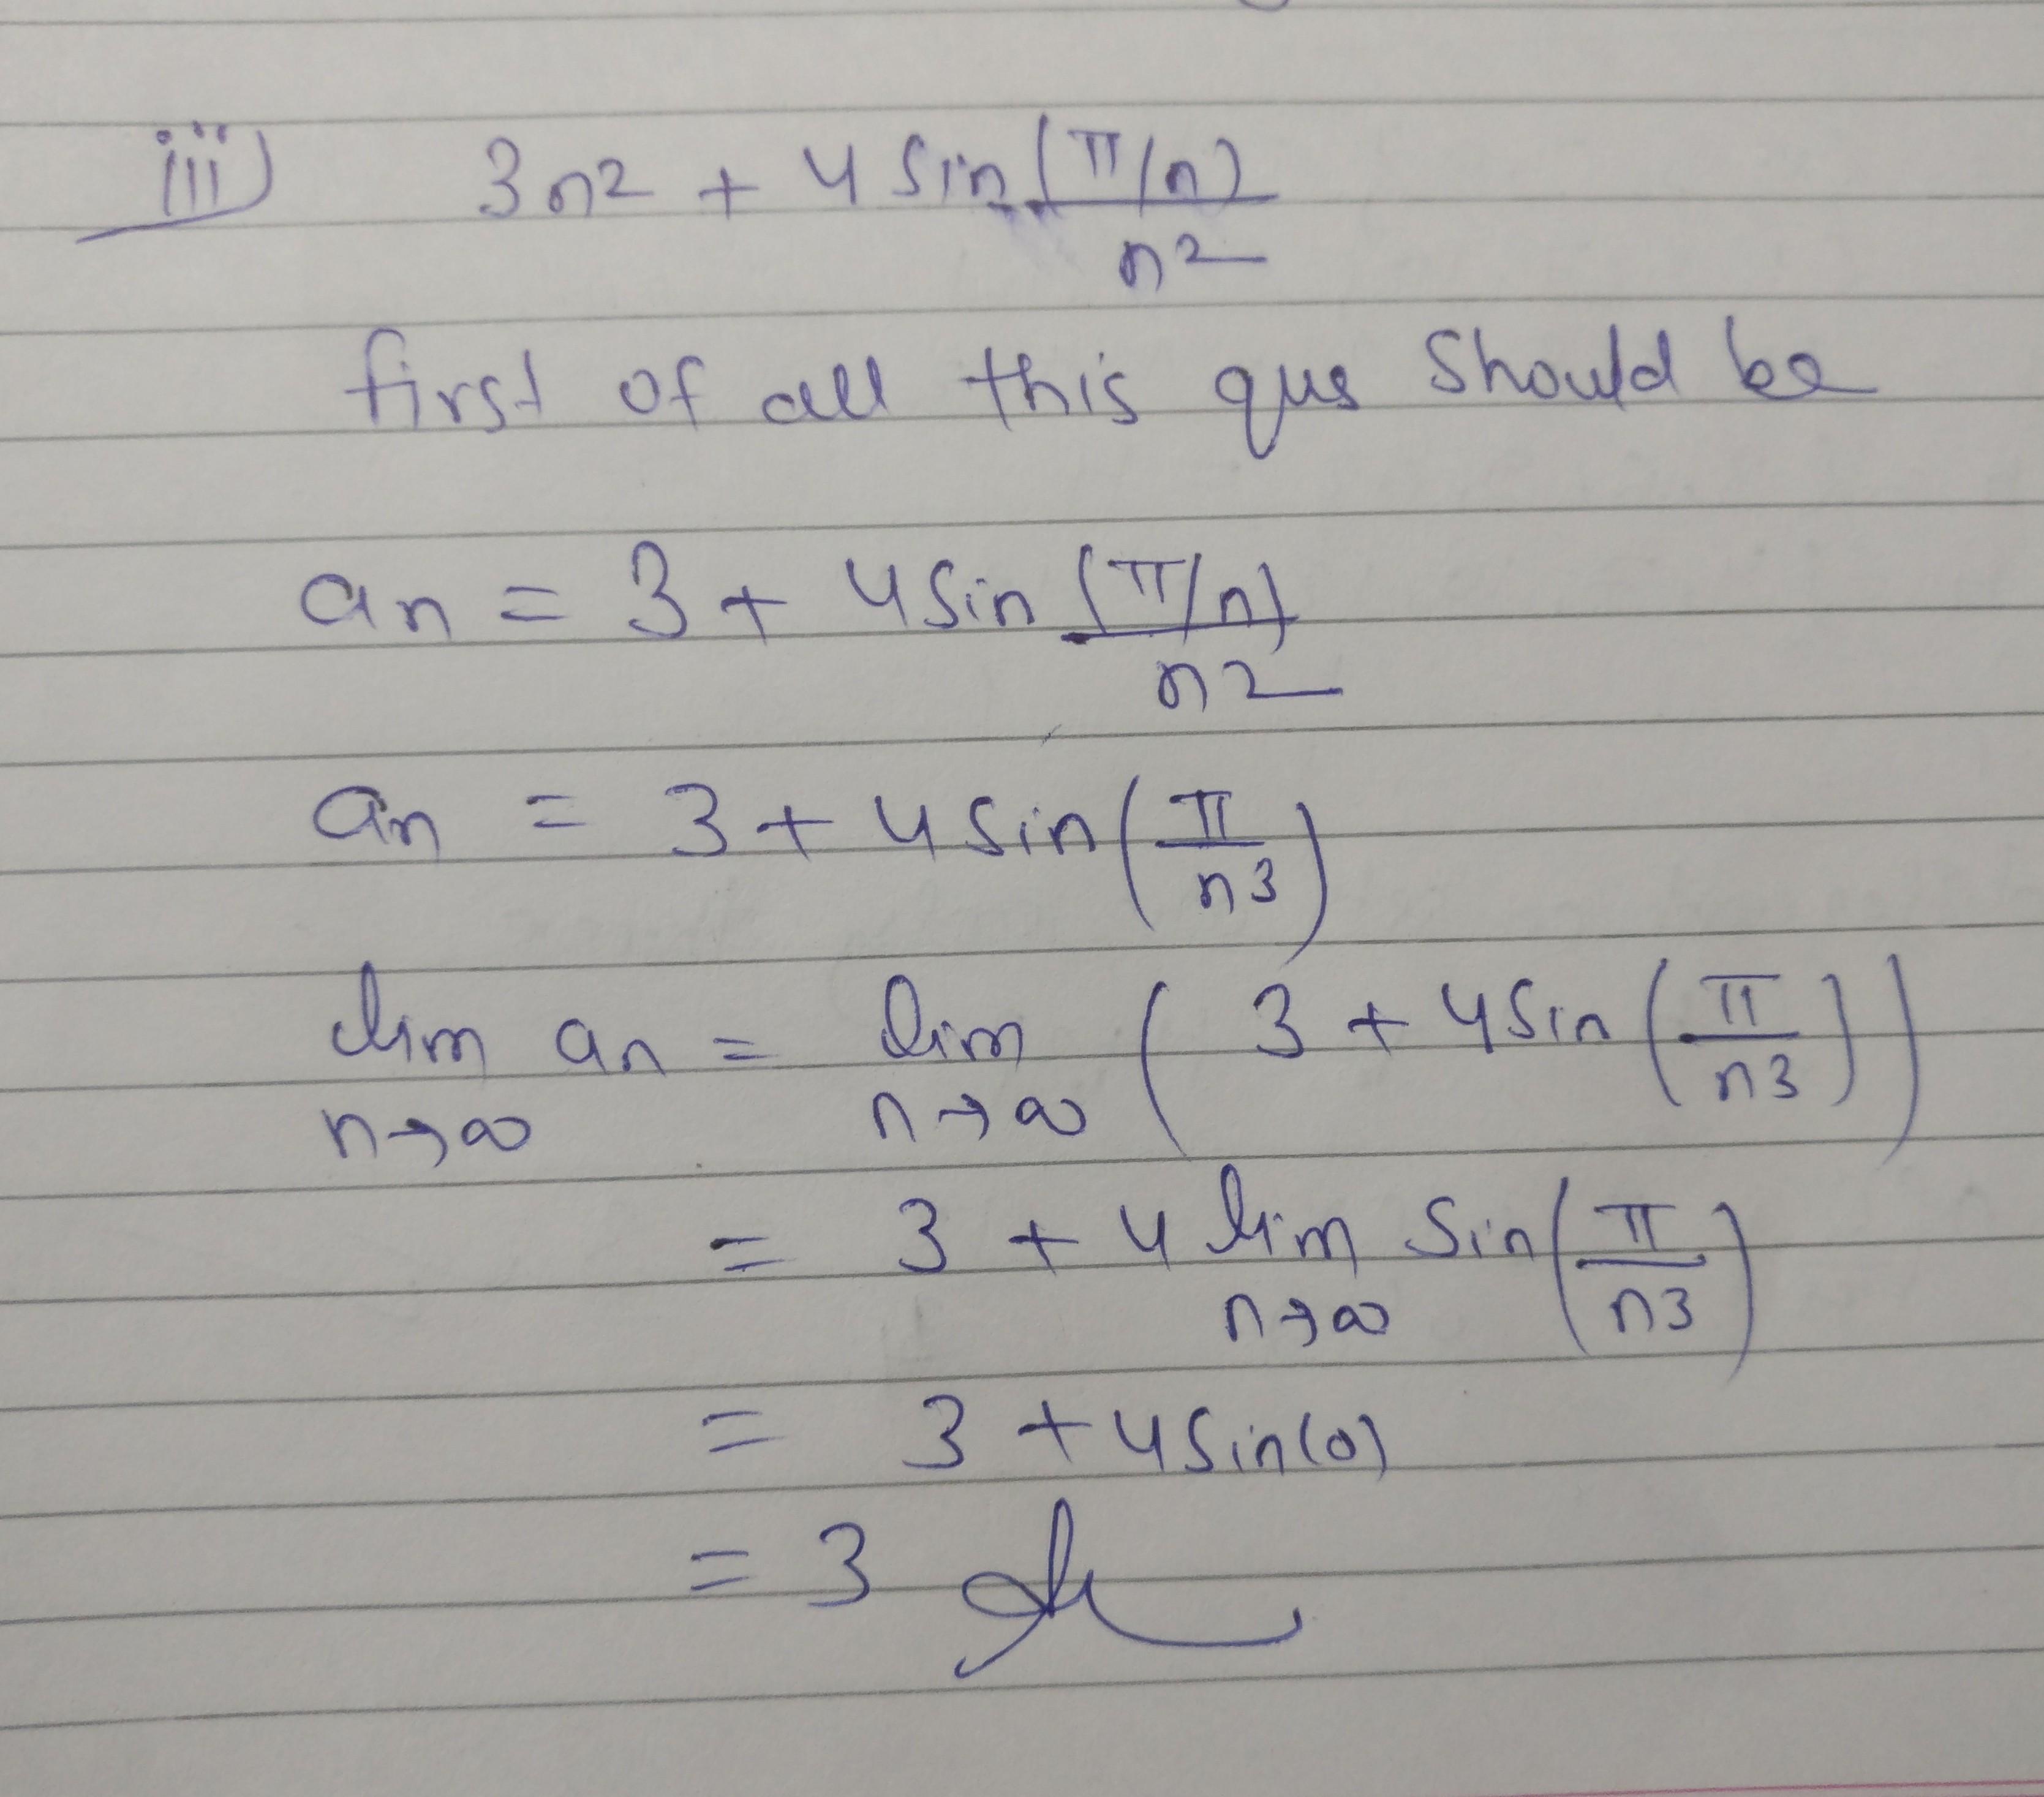 iii) 3n2 + 4 sin (π/n)
n2
first of all this ques should be
an = 3 + 4 sin (π/n)
n2
an = 3 + 4 sin (π/n3)
lim an = lim ( 3 + 4 sin (π/n3) )
n→∞ n→∞
= 3 + 4 lim sin (π/n3)
n→∞
= 3 + 4 sin(0)
= 3